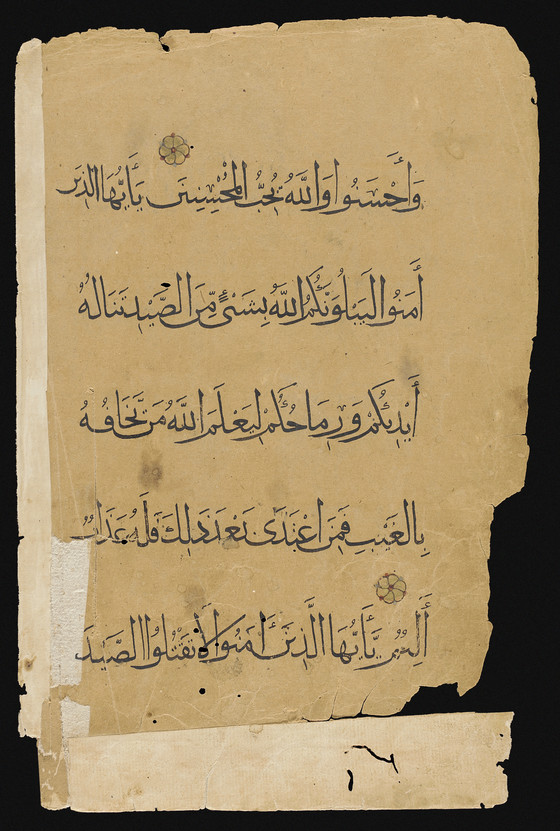 وَأَحْسَنُوا وَاللَّهُ يُحِبُّ الْمُحْسِنِينَ يَأَيُّهَا الَّذِينَ
أَمَنُوا لَيَبْلُوَنَّكُمُ اللَّهُ بِشَيْءٍ مِّنَ الصَّيْدِ تَنَالُهُ
أَيْدِيكُمْ وَرِمَاحُكُمْ لِيَعْلَمَ اللَّهُ مَن يَّخَافُهُ
بِالْغَيْبِ فَمَنِ اعْتَدَى بَعْدَ ذَلِكَ فَلَهُ عَذَابٌ
أَلِيمٌ يَّأَيُّهَا الَّذِينَ ءَامَنُوا لَا تَقْتُلُوا الصَّيْدَ